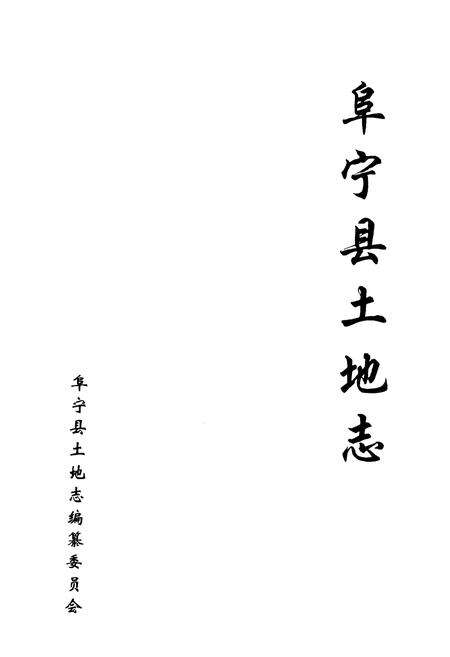 阜宁县土地志
阜宁县土地志编纂委员会